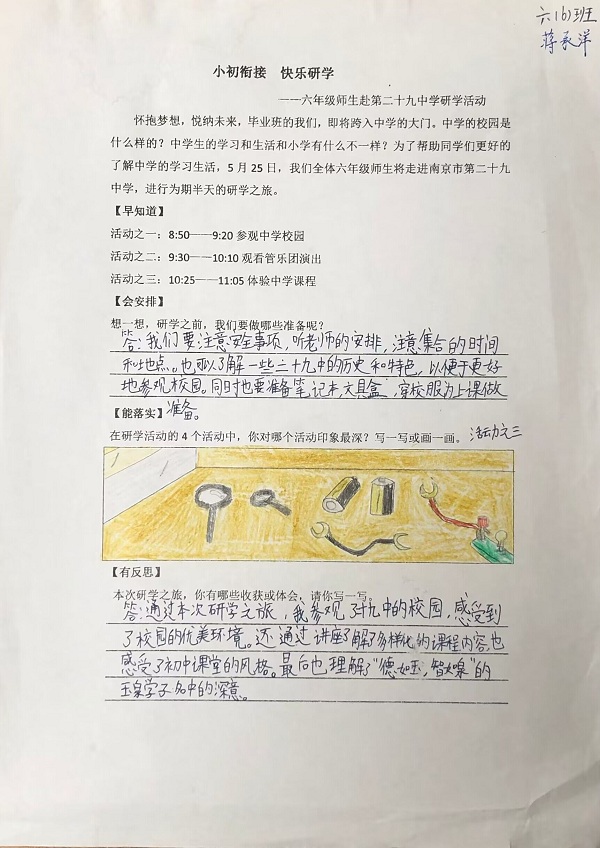 六(6)班
蒋承洋
小初衔接 快乐研学
——六年级师生赴第二十九中学研学活动
怀抱梦想，悦纳未来，毕业班的我们，即将跨入中学的大门。中学的校园是
什么样的？中学生的学习和生活和小学有什么不一样？为了帮助同学们更好的
了解中学的学习生活，5月25日，我们全体六年级师生将走进南京市第二十九
中学，进行为期半天的研学之旅。
【早知道】
活动之一：8:50——9:20 参观中学校园
活动之二：9:30——10:10 观看管乐团演出
活动之三：10:25——11:05 体验中学课程
【会安排】
想一想，研学之前，我们要做哪些准备呢？
答：我们要注意安全事项，听老师的安排，注意集合的时间
和地点。也可以了解一些二十九中的历史和特色，以便于更好
地参观校园。同时也要准备笔记本，文具盒，穿校服为上课做
准备。
【能落实】
在研学活动的4个活动中，你对哪个活动印象最深？写一写或画一画。 活动之三
【有反思】
本次研学之旅，你有哪些收获或体会，请你写一写。
答：通过本次研学之旅，我参观了廿九中的校园，感受到
了校园的优美环境。还通过讲座了解了多样化的课程内容，也
感受了初中课堂的风格。最后也理解了“德如玉，智如泉”的
玉泉学子名中的深意。